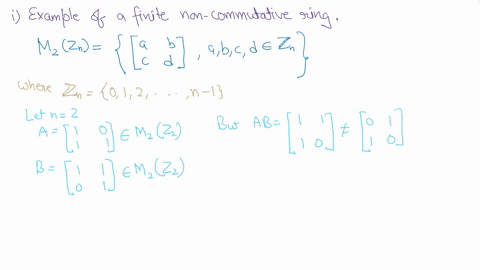 i) Example of a finite non-commutative ring.
M₂(Zₙ) = { [a b; c d] , a,b,c,d ∈ ℤₙ }
where ℤₙ = {0,1,2, . . . ,n-1}
Let n=2
A = [1 0; 1 1] ∈ M₂(Z₂)
But AB = [1 1; 1 0] ≠ [0 1; 1 0]
B = [1 1; 0 1] ∈ M₂(Z₂)